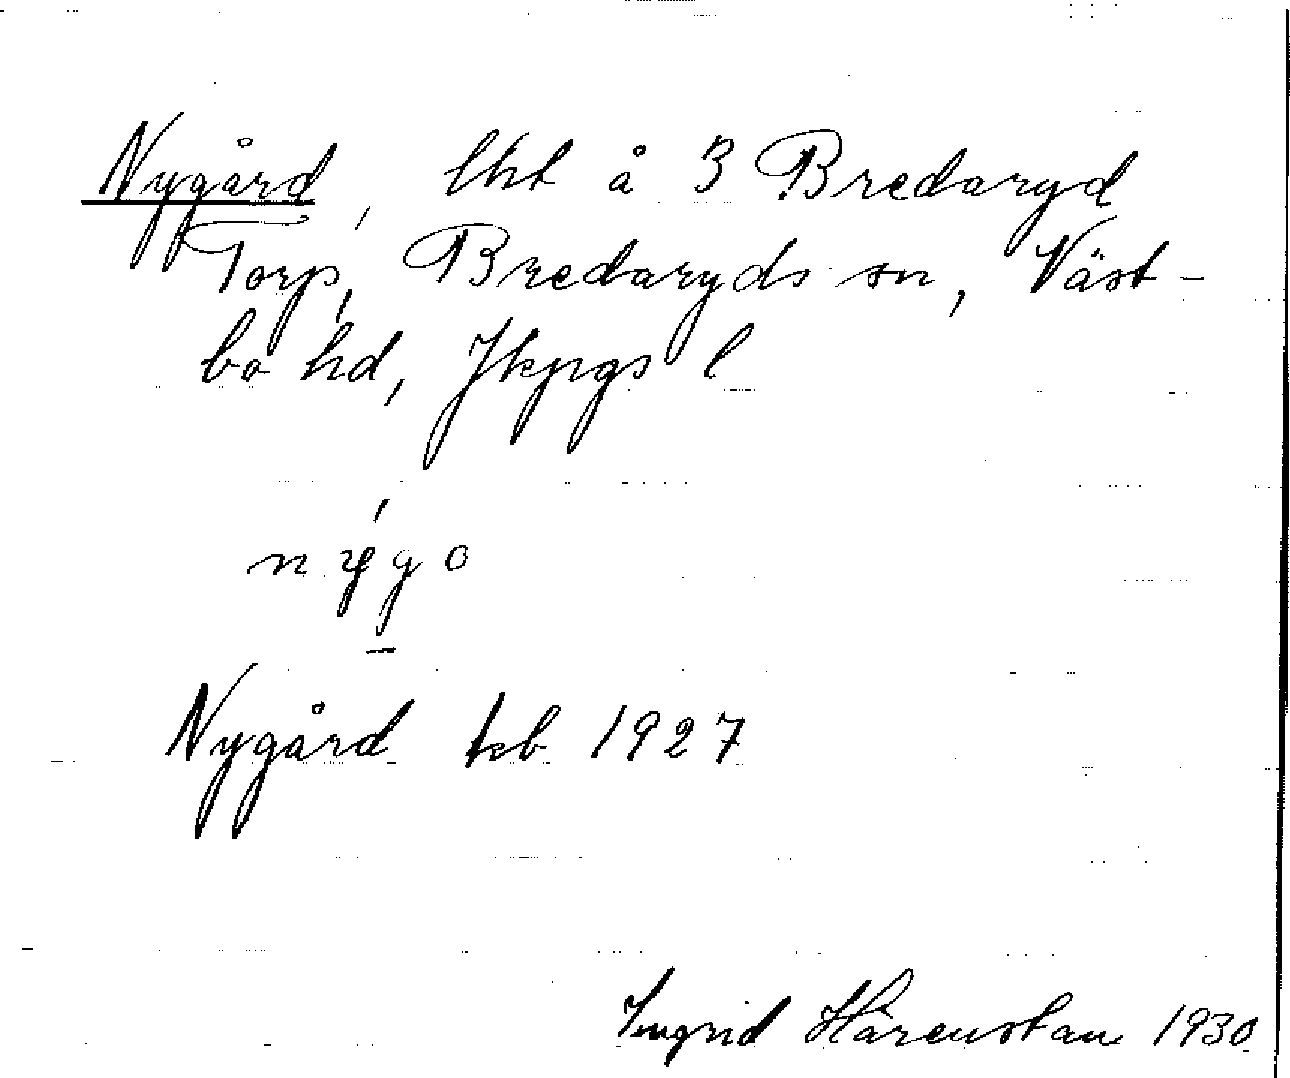 Nygård, lht å 3 Bredaryd
Torp, Bredaryds sn, Väst-
bo hd, Jkpgs l
nýgo
Nygård kb 1927
Ingrid Härenstam 1930